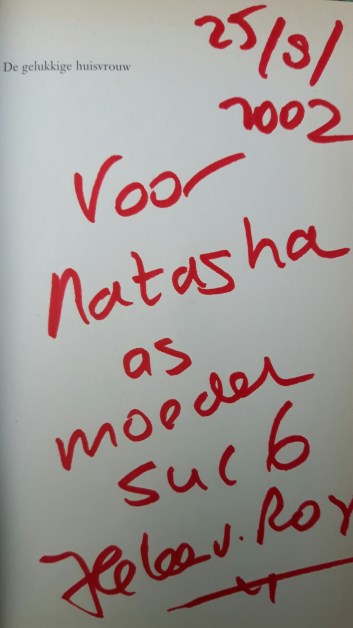 De gelukkige huisvrouw
25/9/
2002
Voor
Natasha
as
moeder
suc6
Heleen v. Roy